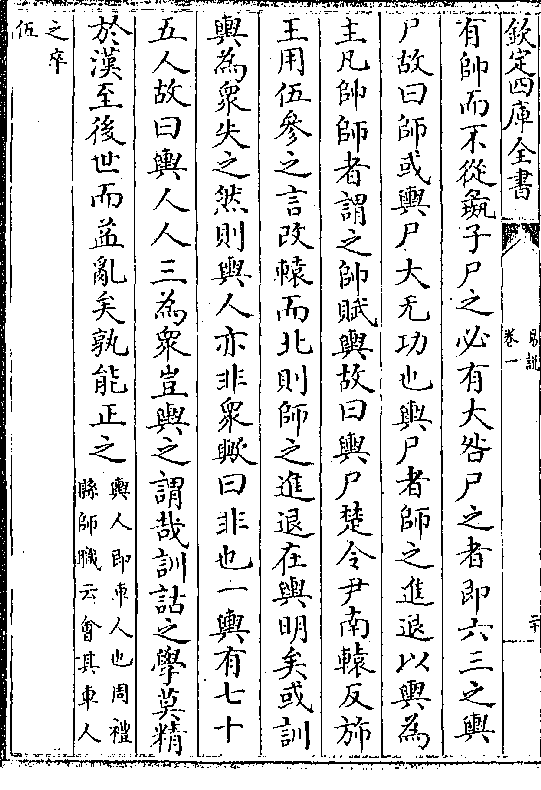 欽定四庫全書
易說
卷一
二十
有帥而不從彘子尸之必有大咎尸之者即六三之輿
尸故曰師或輿尸大无功也輿尸者師之進退以輿為
主凡帥師者謂之帥賦輿故曰輿尸楚令尹南轅反斾
王用伍參之言改轅而北則師之進退在輿明矣或訓
輿為衆失之然則輿人亦非衆歟曰非也一輿有七十
五人故曰輿人人三為衆豈輿之謂哉訓詁之學莫精
於漢至後世而益亂矣孰能正之
輿人即車人也周禮
縣師職云會其車人
之卒
伍